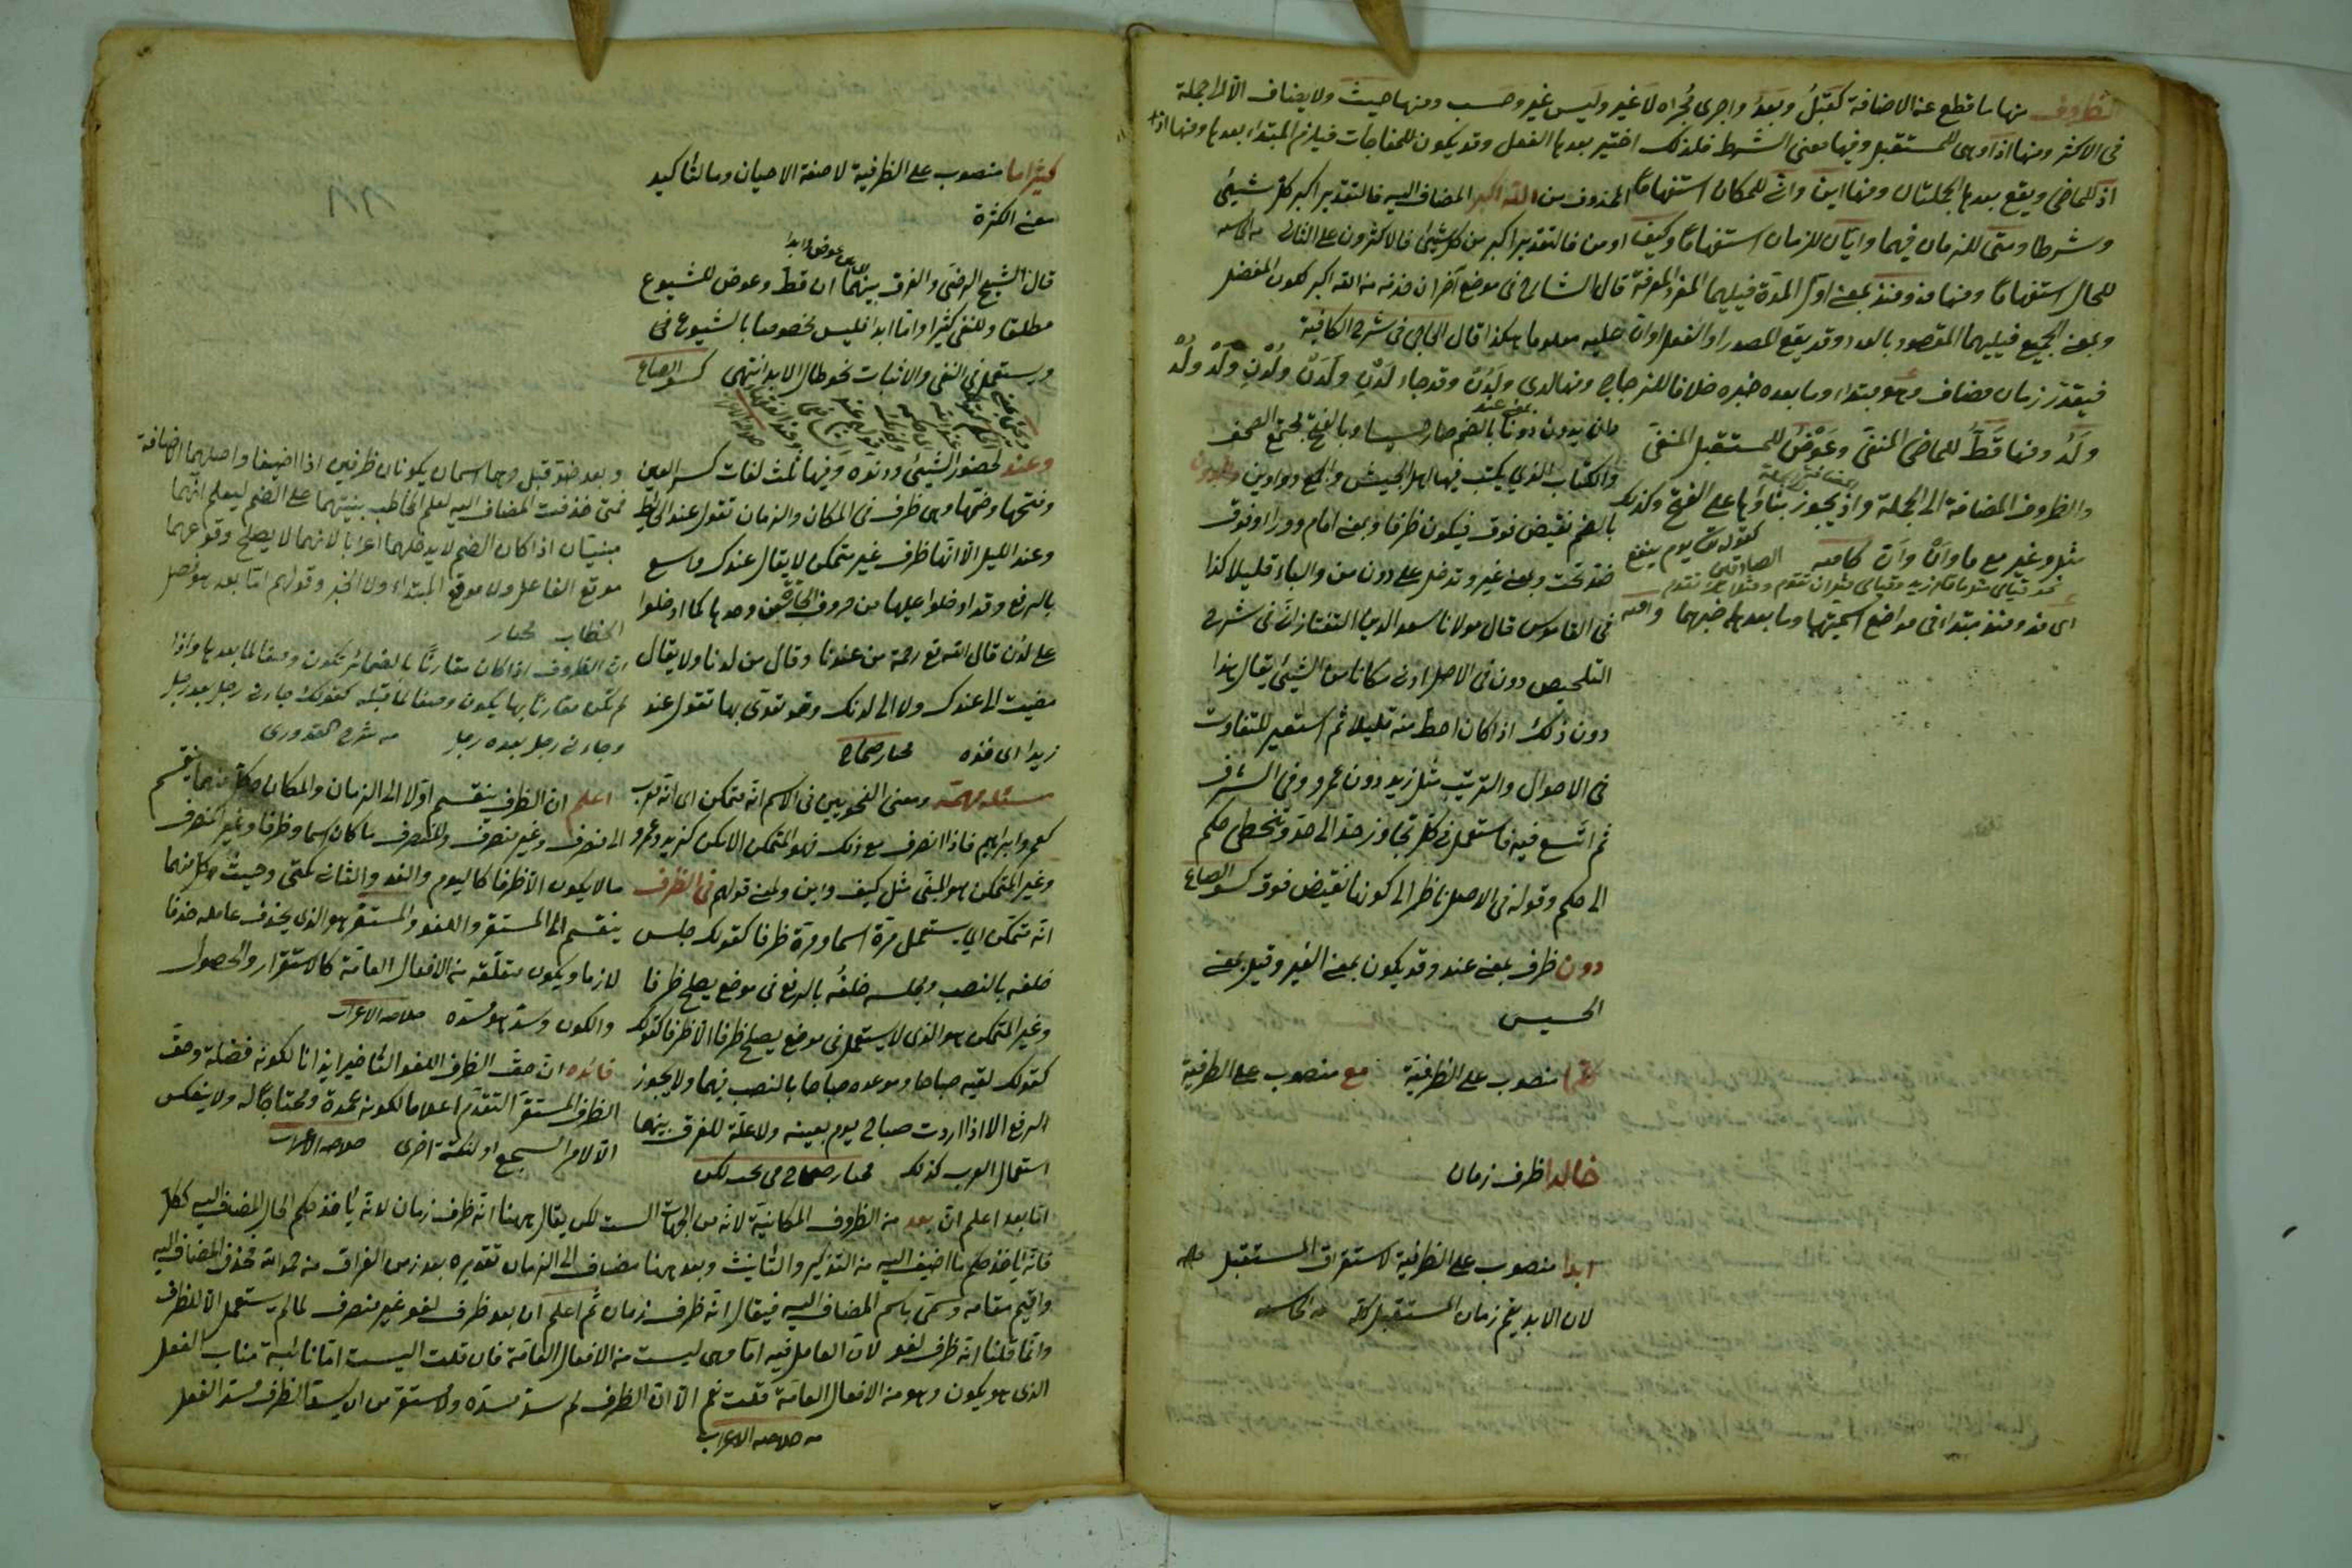 الظروف منها ما قطع عن الاضافة كقبلُ وبعدُ واجرى مُجراه لا غير وليس غير وحسب ومنها حيث ولا يضاف الا الى الجملة
فى الاكثر ومنها اذا وهى للمستقبل وفيها معنى الشرط فلذلك اختير بعدها الفعل وقد يكون للمفاجات فيلزم المبتداء بعدها ومنها اذ
اذ للماضى ويقع بعدها الجملتان ومنها اين وانى للمكان استفهاما
وشرطا ومتى للزمان فيهما وايان للزمان استفهاما وكيف
للحال استفهاما ومنها مذ ومنذ بمعنى اول المدة فيليهما المفرد المعرفة
وبمعنى الجميع فيليهما المقصود بالعدد وقد يقع المصدر او الفعل او ان
فيقدر زمان مضاف وهو مبتداء وما بعده خبره خلافا للزجاج ومنها لدى ولدن وقد جاء لدْن ولَدَن ولُدْن ولَدْ ولُدْ
ولَدُ ومنها قطّ للماضى المنفى وعوضُ للمستقبل المنفى
والظروف المضافة الى الجملة واذ يجوز بناؤها على الفتح وكذلك
مثل وغير مع ما وانْ وانّ كافيه
كقوله تعالى يوم ينفع الصادقين
اى مذ ومنذ مبتداء فى مواضع اسميتهما وما بعدهما خبرهما
المحذوف من الله اكبر المضاف اليه فالتقدير اكبر كل شيئ
او من فالتقدير اكبر من كل شيئ فالاكثرون على الثانى
قال الشارح فى موضع آخر ان حذف من الله اكبر لكون المفضل
عليه معلوما هكذا قال الجامى فى شرح الكافية
والكتاب الذى يكتب فيها اهل الجيش والجمع دواوين
بالضم نقيض فوق فيكون ظرفا وبمعنى امام ووراء وفوق
ضد تحت وبمعنى غير وتدخل على دون من والباء قليلا كذا
فى القاموس قال مولانا سعد الدين التفتازانى فى شرح
التلخيص دون فى الاصل ادنى مكانا من الشيئ يقال هذا
دون ذلك اذا كان احط منه قليلا ثم استعير للتفاوت
فى الاحوال والترتيب مثل زيد دون عمرو وفى الشرف
ثم اتسع فيه فاستعمل فى كل تجاوز حد الى حد وتخطى حكم
الى حكم وقوله فى الاصل ناظر الى كونها نقيض فوق
دون ظرف بمعنى عند وقد يكون بمعنى الغير وقيل بمعنى
الخسيس
منصوب على الظرفية مع منصوب على الظرفية
خالدا ظرف زمان
ابدا منصوب على الظرفية لاستغراق المستقبل
لان الابد يعم زمان المستقبل كله
كثيرا ما منصوب على الظرفية لاصفة الاحيان وما لتاكيد
معنى الكثرة
قال الشيخ الرضى والفرق بينهما ان قط وعوض للشيوع
مطلقا وللنفى كثيرا واما ابدا فليس مخصوصا بالشيوع فى
ويستعمل فى النفى والاثبات نحو طال الابد انتهى
وعند لحضور الشيئ ودنوه وفيها ثلث لغات كسر العين
وفتحها وضمها وهى ظرف فى المكان والزمان تقول عند الحائط
وعند الليل الا انها ظرف غير متمكن لا يقال عندك واسع
بالرفع وقد ادخلوا عليها من حروف الجر من وحدها كما ادخلوا
على لدن قال الله تع رحمة من عندنا وقال من لدنا ولا يقال
مضيت الى عندك ولا الى لدنك وقد تغرى بها تقول عندك
زيدا اى خذه مختار صحاح
مسئلة مهمة ومعنى النحويين فى الاسم انه متمكن اى انه معرب
كعمر وابراهيم فاذا انصرف مع ذلك فهو المتمكن الامكن كزيد وعمرو
وغير المتمكن هو المبنى مثل كيف واين ومعنى قولهم فى الظرف
انه متمكن اى يستعمل مرة اسما ومرة ظرفا كقولك جلس
خلفه بالنصب ومجلسه خلفُه بالرفع فى موضع يصلح ظرفا
وغير المتمكن هو الذى لا يستعمل فى موضع يصلح ظرفا الا ظرفا كقولك
كقولك لقيته صباحا وموعده صباحا بالنصب فيهما ولا يجوز
الرفع الا اذا اردت صباح يوم بعينه ولا علة للفرق بينهما
استعمال العرب كذلك مختار صحاح
وبعد ضد قبل وهما اسمان يكونان ظرفين اذا اضيفا واصلهما الاضافة
فمتى حذفت المضاف اليه لعلم المخاطب بنيتهما على الضم ليعلم انهما
مبنيتان اذا كان الضم لا يدخلهما اعرابا لانهما لا يصلح وقوعهما
موقع الفاعل ولا موقع المبتداء ولا الخبر وقولهم اما بعد هو فصل
الخطاب مختار
ان الظروف اذا كان مقارنا بالضمائر يكون وصفا لما بعدها واذا
لم تكن مقارنا بها يكون وصفا لما قبله كقولك جاءنى رجل بعد رجل
وجاءنى رجل بعده رجل من شرح القدورى
اعلم ان الظرف ينقسم اولا الى الزمان والمكان وكل منهما ينقسم
الى منصرف وغير منصرف والمنصرف ما كان اسما وظرفا وغير المنصرف
ما لا يكون الا ظرفا كاليوم والغد والثانى كمتى وحيث وكل منهما
ينقسم الى المستقر واللغو والمستقر هو الذى يحذف عامله حذفا
لازما ويكون متعلقه من الافعال العامة كالاستقرار والحصول
والكون وسد هو مسده خلاصة الاعراب
فائده ان حق الظرف اللغو التاخير ايذانا لكونه فضلة وحق
الظرف المستقر التقدم اعلاما لكونه عمدة ومحتاجا اليه ولا ينعكس
الا لامر السجع او لنكتة اخرى خلاصة الاعراب
اما بعد اعلم ان بعد من الظروف المكانية لانه من الجهات الست لكن يقال ههنا انه ظرف زمان لانه ياخذ حكم الحال المضاف اليه ككل
فانه ياخذ حكم ما اضيف اليه من التذكير والتانيث وبعد ههنا مضاف الى الزمان تقديره بعد زمن الفراق من حمد الله فحذف المضاف اليه
واقيم مقامه وسمى باسم المضاف اليه فيقال انه ظرف زمان ثم اعلم ان بعد ظرف لغو غير منصرف لما لم يستعمل الا للظرف
وانما قلنا انه ظرف لغو لان العامل فيه اما وهى ليست من الافعال العامة فان قلت اليست اما نائبة مناب الفعل
الذى هو يكون وهو من الافعال العامة قلت نعم الا ان الظرف لم يسد مسده والمستقر من ان يسد الظرف مسد الفعل
من خلاصة الاعراب